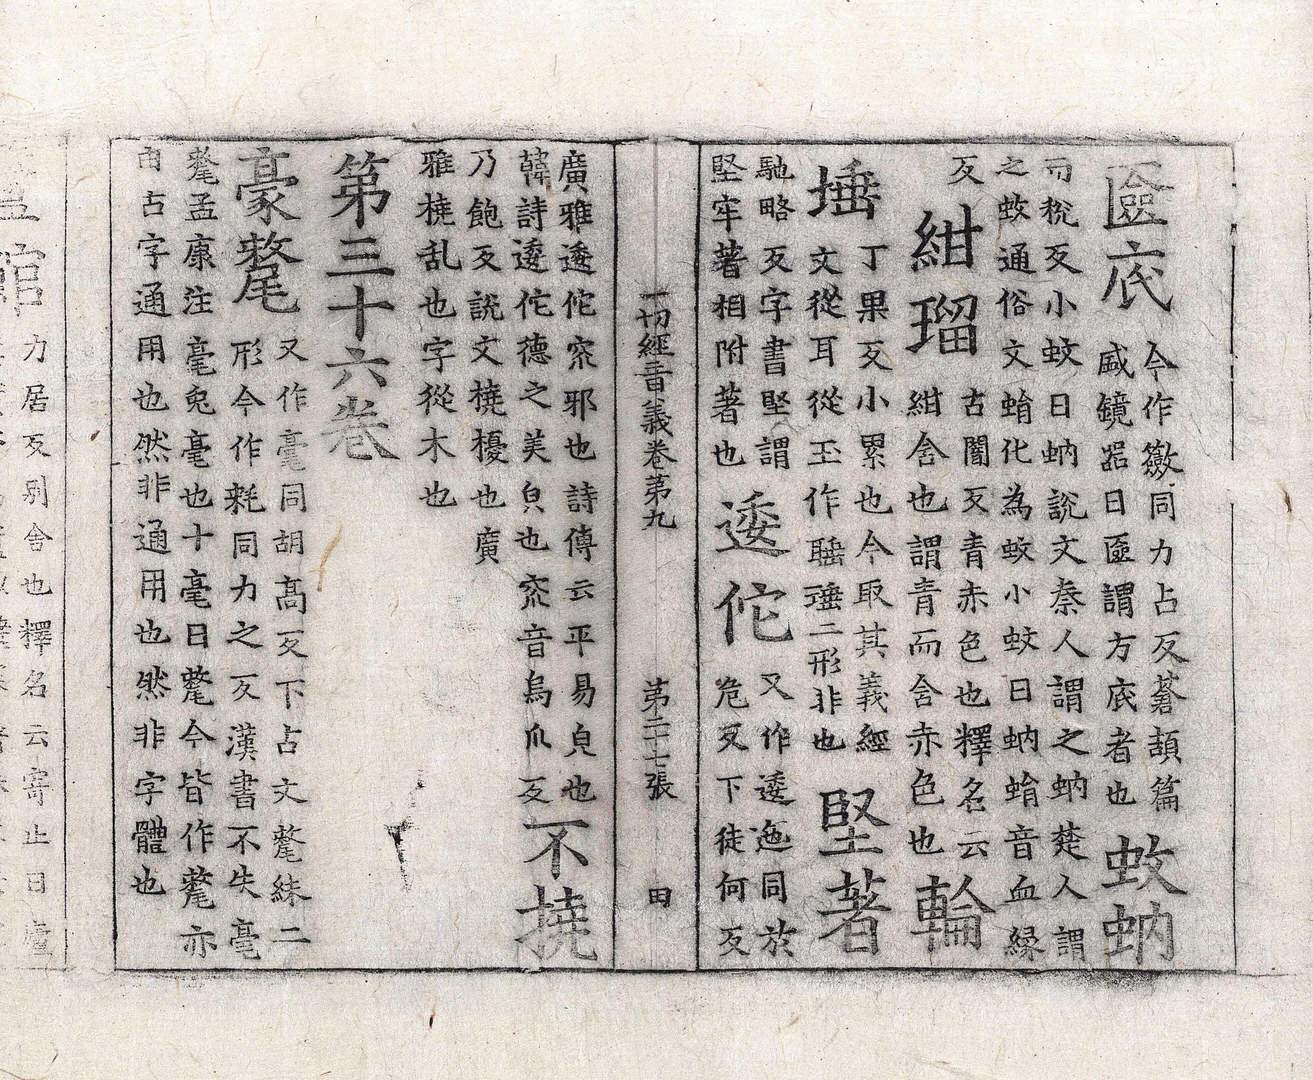 匳底
今作籨同力占反蒼頡篇
盛鏡器曰匳謂方底者也
蚊蚋
而稅反小蚊曰蚋說文秦人謂之蚋楚人謂
之蚊通俗文蜎化為蚊小蚊曰蚋蜎音血緣
反
紺瑠
古闇反青赤色也釋名云
紺含也謂青而含赤色也
輪
埵
丁果反小累也今取其義經
文從耳從玉作䏙㻔二形非也
堅著
馳略反字書堅謂
堅牢著相附著也
逶佗
又作逶迤同於
危反下徒何反
一切經音義卷第九 第二十七張 田
廣雅逶佗窊邪也詩傳云平易皃也
韓詩逶佗德之美皃也窊音烏爪反
不撓
乃飽反說文撓擾也廣
雅橈乱也字從木也
第三十六卷
豪氂
又作毫同胡高反下占文氂練二
形今作耗同力之反漢書不失毫
氂孟康注毫兔毫也十毫曰氂今皆作氂亦
由古字通用也然非通用也然非字體也
館
力居反別舍也釋名云寄止曰廬